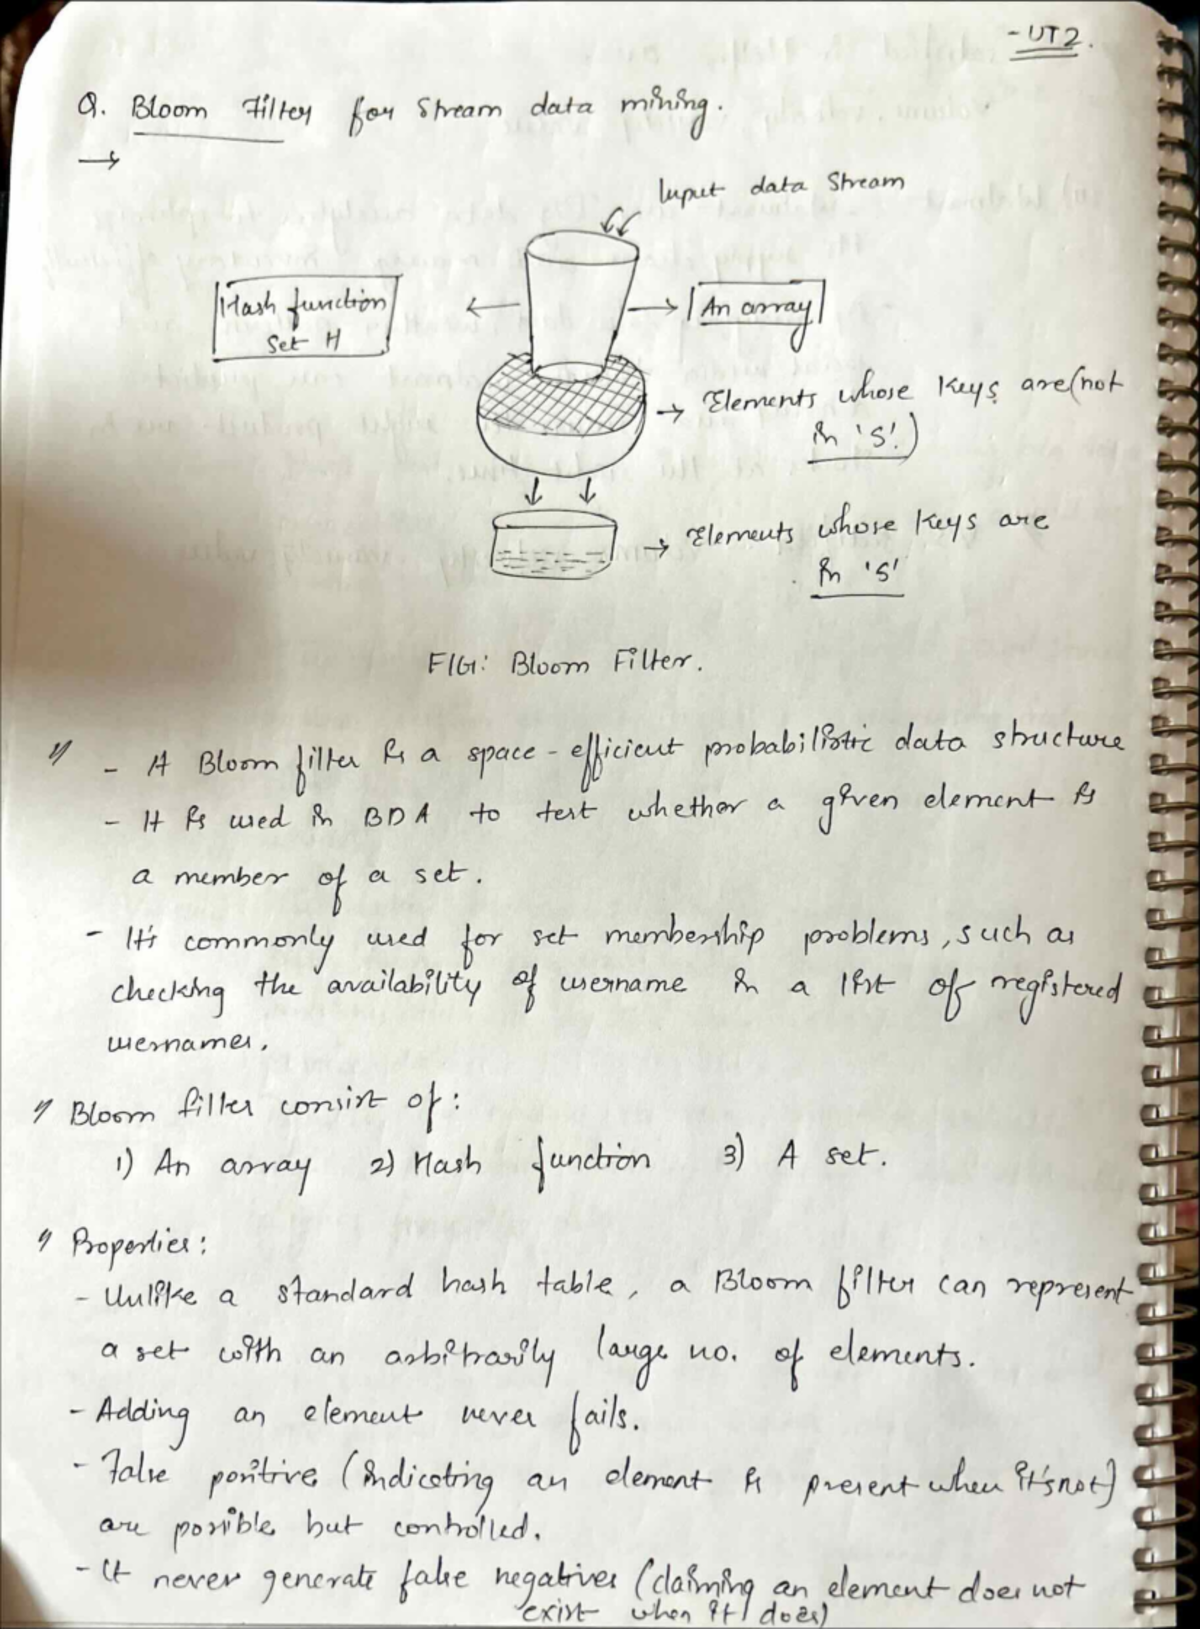 - UT2.
Q. Bloom Filter for Stream data mining.
→
Input data Stream
Hash function
Set H
An array
→ Elements whose Keys are (not
in 'S'.)
→ Elements whose Keys are
in 'S'
FIG: Bloom Filter.
- A Bloom filter is a space-efficient probabilistic data structure
- It is used in BDA to test whether a given element is
a member of a set.
- It's commonly used for set membership problems, such as
checking the availability of username in a list of registered
usernames.
Bloom filter consist of:
1) An array 2) Hash function 3) A set.
Properties:
- Unlike a standard hash table, a Bloom filter can represent
a set with an arbitrarily large no. of elements.
- Adding an element never fails.
- False positive (indicating an element is present when it's not)
are possible but controlled.
- It never generate false negatives (claiming an element does not
exist when it does)